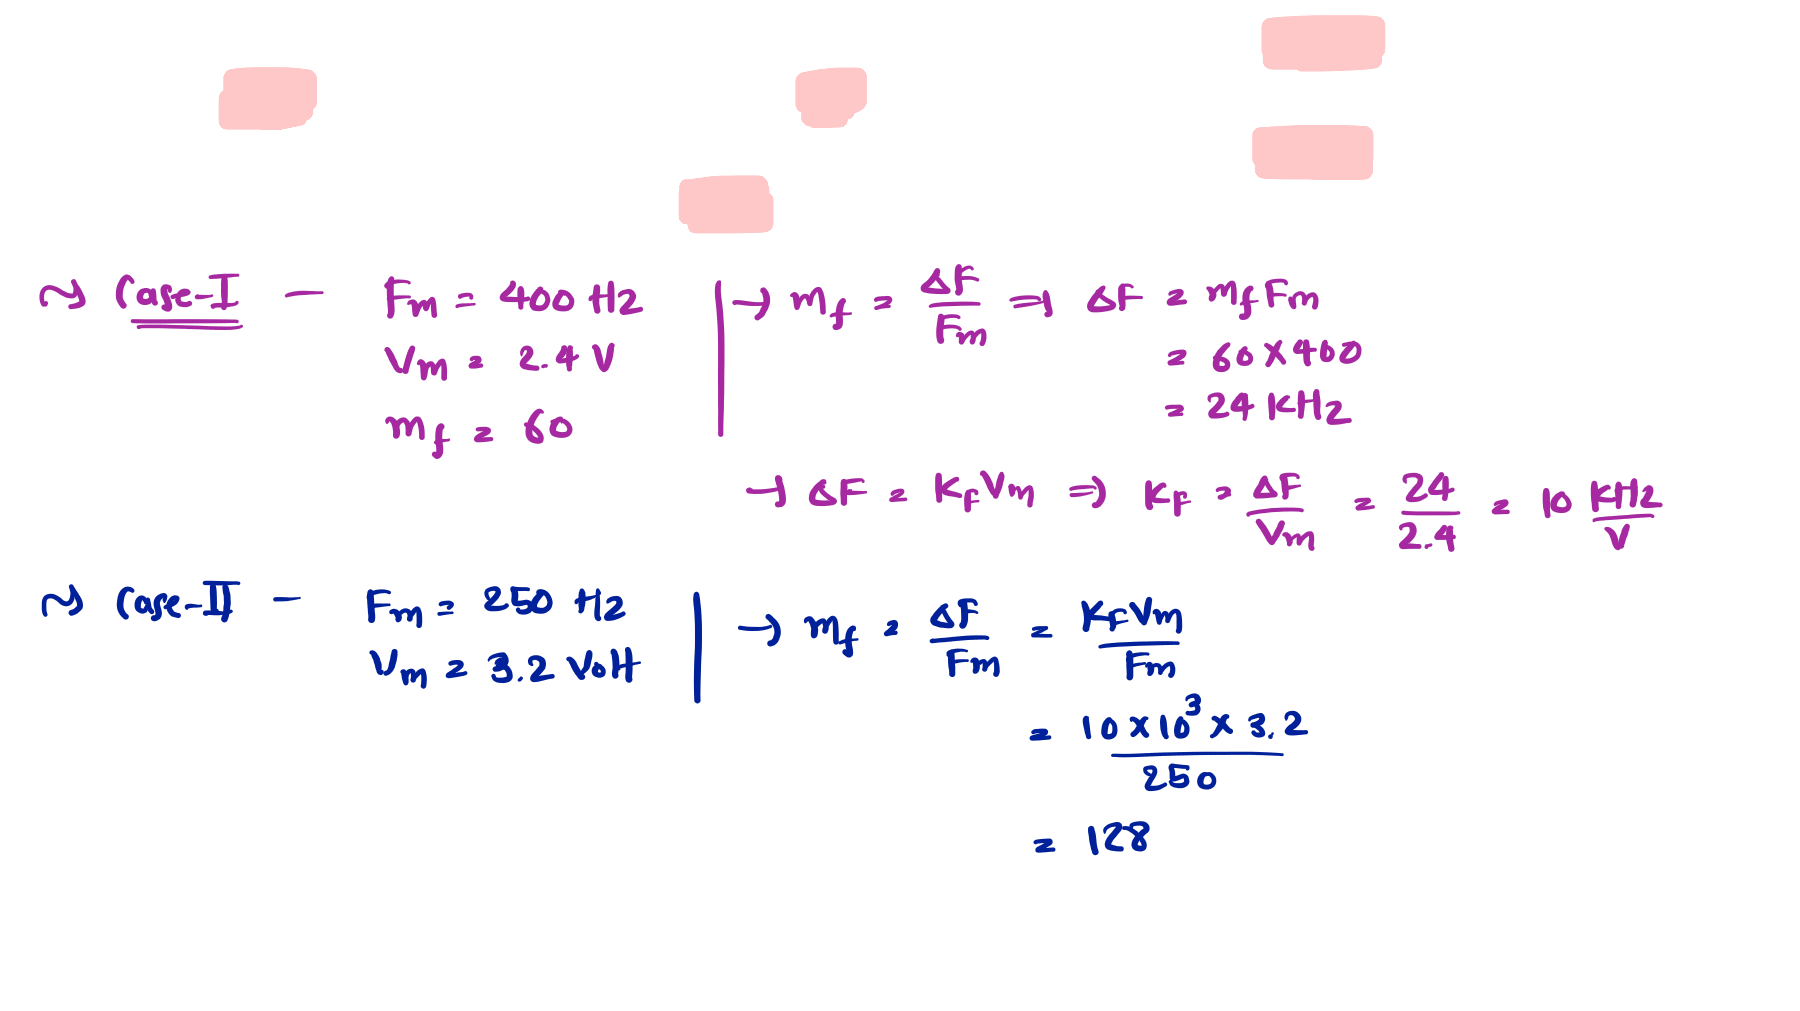 ~ Case-I - Fm = 400 Hz
Vm = 2.4 V
mf = 60
→ mf = ΔF/Fm ⇒ ΔF = mf Fm
= 60 × 400
= 24 KHz
→ ΔF = Kf Vm ⇒ KF = ΔF/Vm = 24/2.4 = 10 KHz/V
~ Case-II - Fm = 250 Hz
Vm = 3.2 Volt
→ mf = ΔF/Fm = KF Vm/Fm
= 10 × 10³ × 3.2/250
= 128